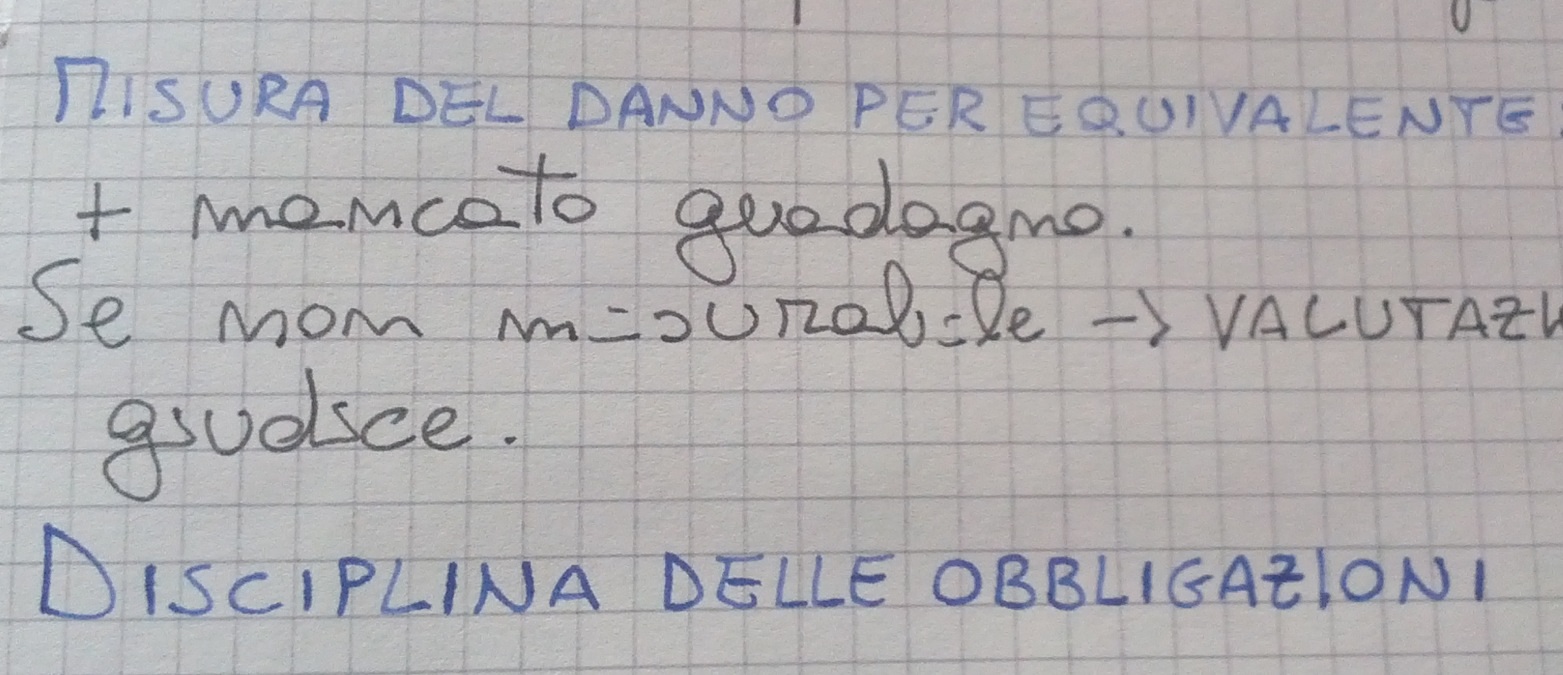 MISURA DEL DANNO PER EQUIVALENTE
+ mancato guadagno.
Se non misurabile -> VALUTAZI
giudice.
DISCIPLINA DELLE OBBLIGAZIONI